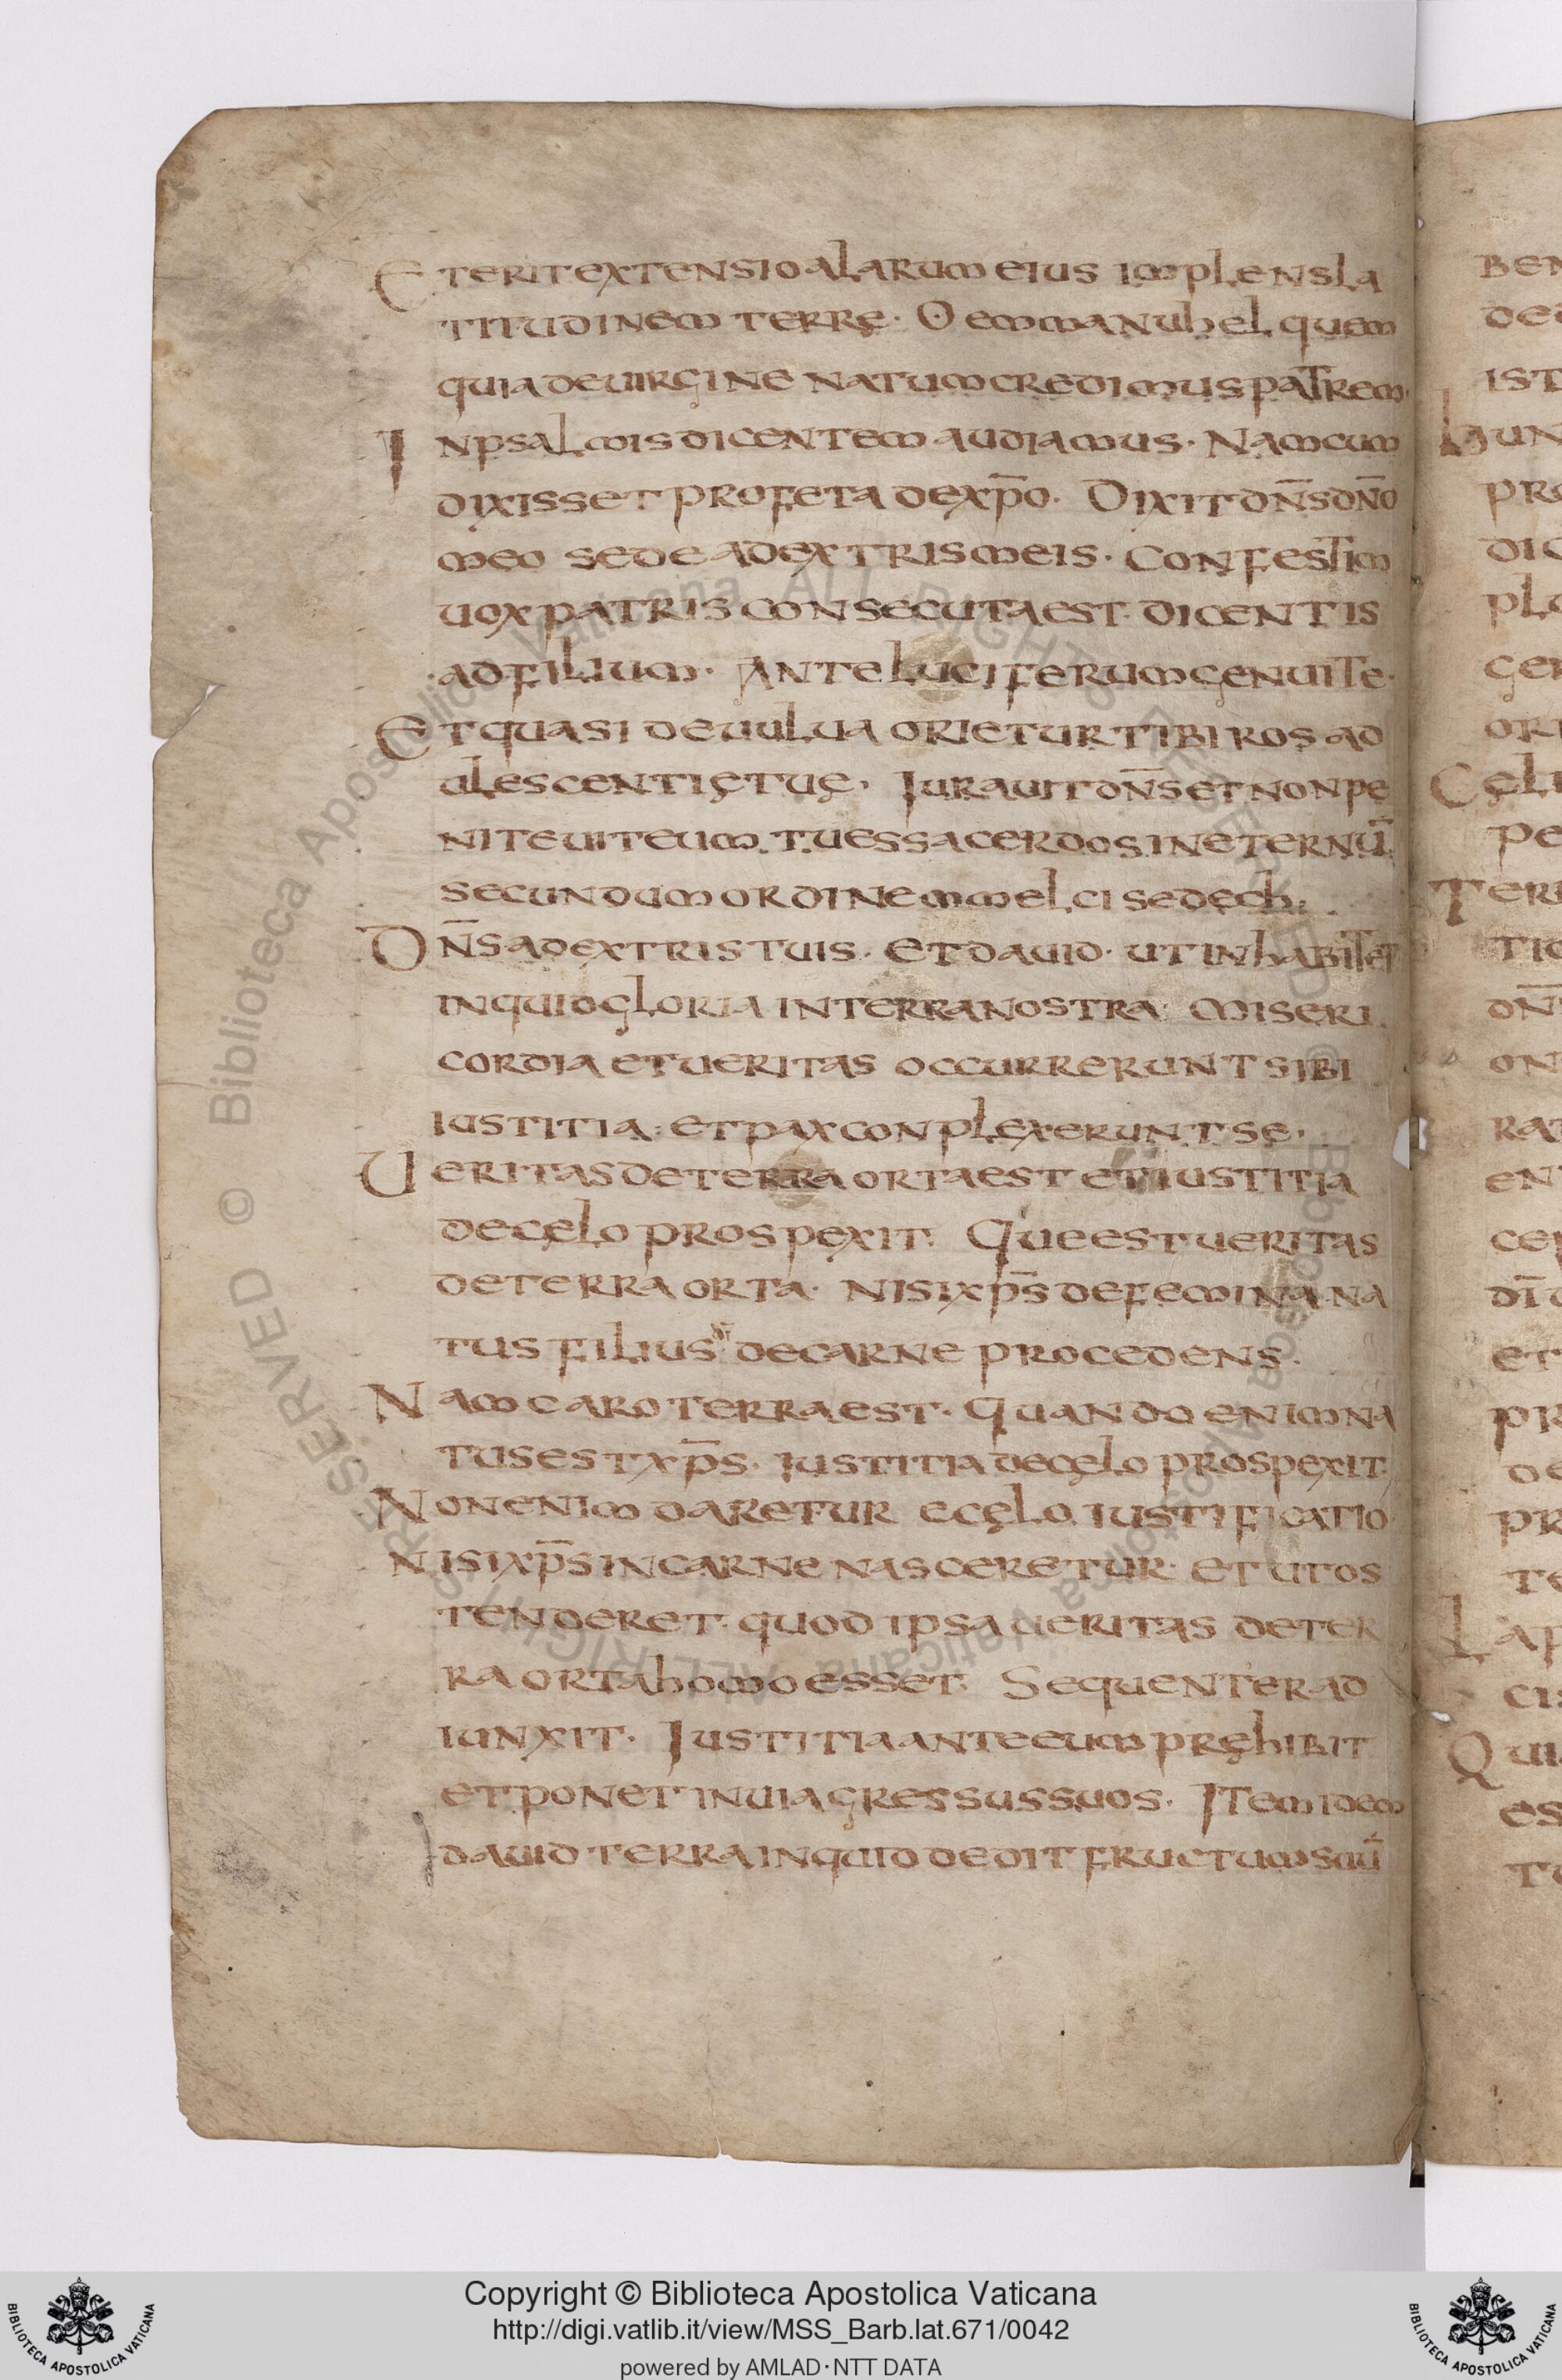 Et erit extensio alarum eius implens la
titudinem terrę· O emmanuhel quem
quia de uirgine natum credimus patrem·
In psalmis dicentem audiamus· Nam cum
dixisset profeta de xp̄o· Dixit dn̄s dn̄o
meo sede a dextris meis· Confestim
uox patris consecuta est· dicentis
ad filium· Ante luciferum genui te·
Et quasi de uulua orietur tibi ros ad
ulescentię tuę· Iurauit dn̄s et non pe
niteuit eum· Tu es sacerdos in eternū
secundum ordinem melcisedech·
Dn̄s a dextris tuis· Et dauid· ut inhabitet
inquid gloria in terra nostra· Miseri
cordia et ueritas occurrerunt sibi
iustitia· et pax conplexerunt se·
Ueritas de terra orta est et iustitia
de cęlo prospexit· Que est ueritas
de terra orta· nisi xp̄s de femina na
tus filius d̄ī de carne procedens·
Nam caro terra est· Quando enim na
tus est xp̄s· iustitia de cęlo prospexit·
Non enim daretur e cęlo iustificatio
nisi xp̄s in carne nasceretur· et ut os
tenderet· quod ipsa ueritas de ter
ra orta homo esset· Sequenter ad
iunxit· Iustitia ante eum pręhibit
et ponet in uia gressus suos· Item idem
dauid terra inquid dedit fructum suū
Copyright © Biblioteca Apostolica Vaticana
http://digi.vatlib.it/view/MSS_Barb.lat.671/0042
powered by AMLAD·NTT DATA